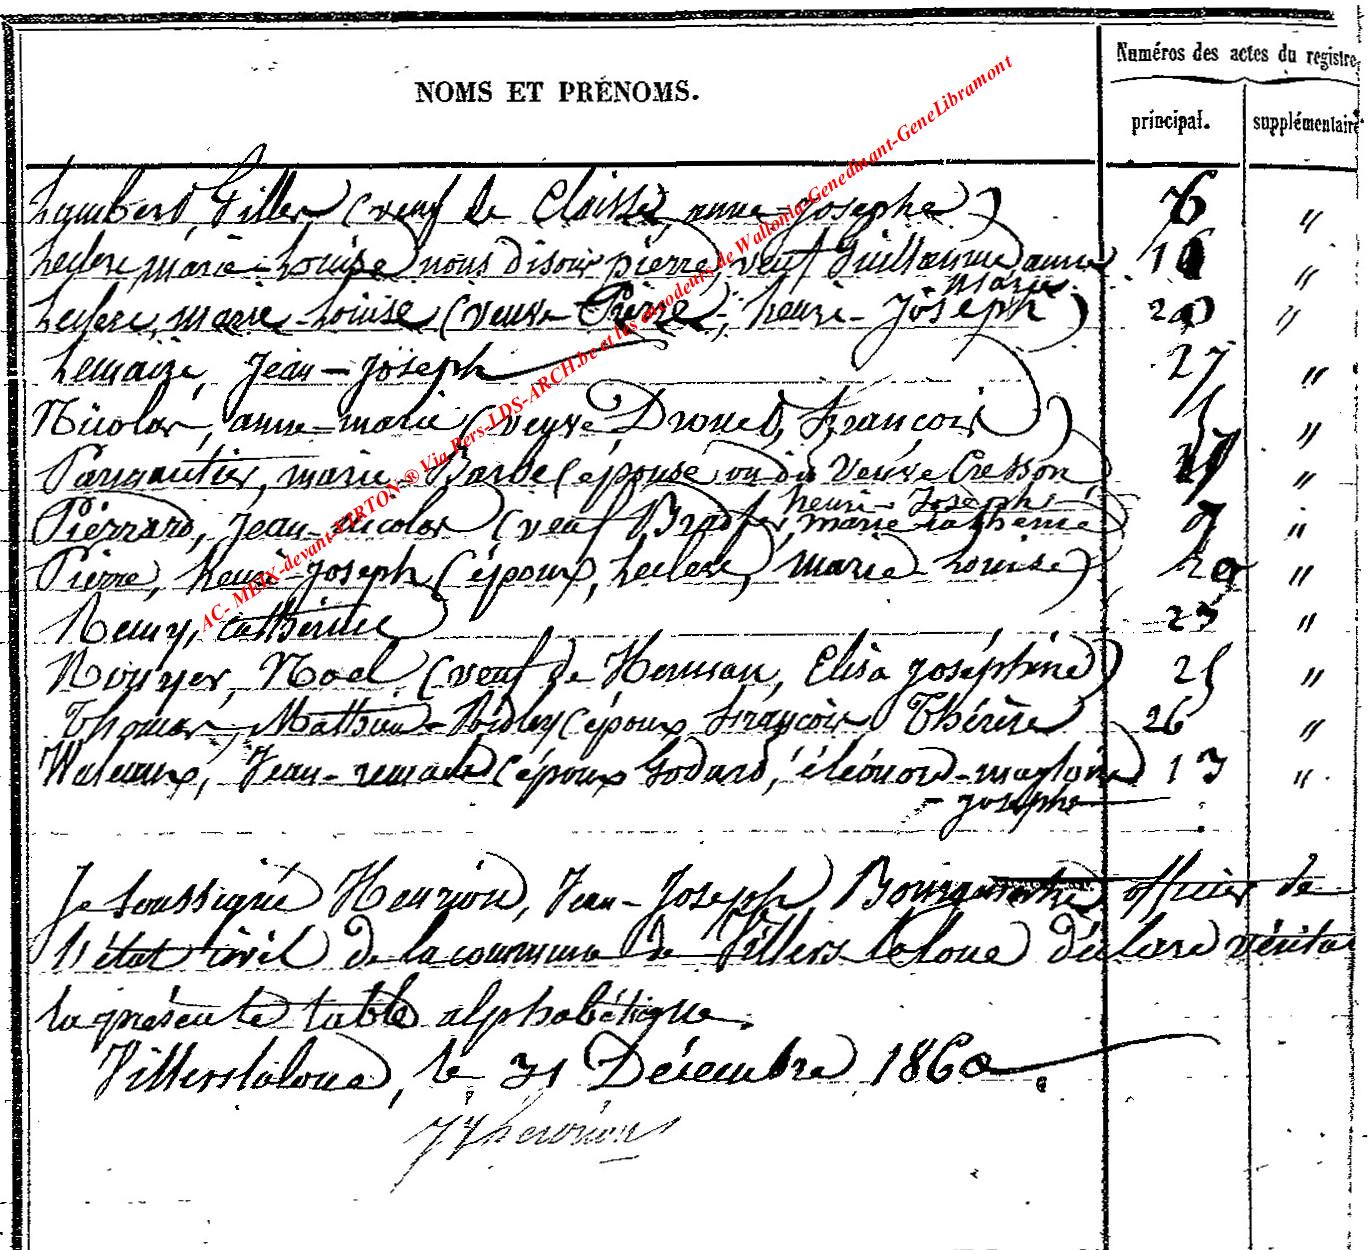 Numéros des actes du registre
NOMS ET PRÉNOMS.
principal. supplémentaire
Lambert, Gilles (veuf de Claisse, anne-josephe) 6 "
Leclere marie-Louise nous disons pierre, veuf Guillaume anne marie 16 "
Leclere, marie-Louise (veuve Pierre, henri-Joseph) 20 "
Lemaire, Jean-joseph 27 "
Nicolas, anne-marie (veuve Drouet, François) "
marie-Barbe (épouse ou dis veuve Cresson "
henri-Joseph
Pierrard, Jean-nicolas (veuf Bradfer, marie catherine) 9 "
Pierre, henri-joseph (époux, Leclere, marie-Louise) 20 "
Remy, catherine 23 "
Noel (veuf de Herman, Elisa joséphine) 25 "
Thomas, Mathieu- (époux François Thérèse 26 "
Jean-remacle (époux Godard, éléonord- 13 "
-josephe
Je soussigné Henrion, Jean-Joseph, Bourgmestre officier de
l'état civil de la commune de Villers laloue déclare
la présente table alphabétique.
Villerslaloue, le 31 Décembre 1860.
JJ henrion
AC- MEIX-devant-VIRTON ® Via Pers-LDS-ARCH.be et les encodeurs de Wallonia-Genedinant-GeneLibramont